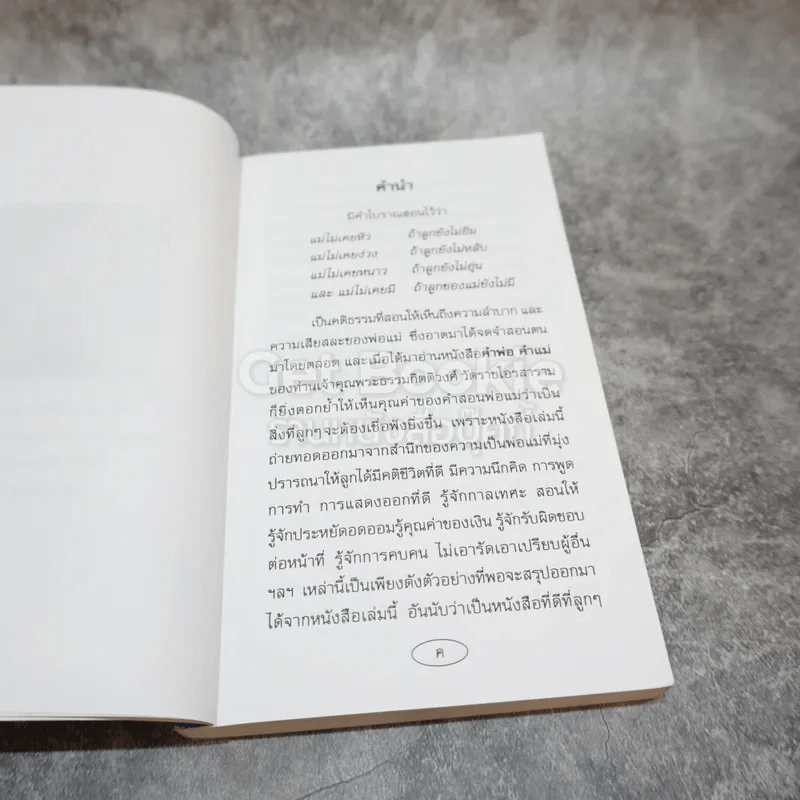 คำนำ
มีคำโบราณสอนไว้ว่า
แม่ไม่เคยหิว ถ้าลูกยังไม่อิ่ม
แม่ไม่เคยง่วง ถ้าลูกยังไม่หลับ
แม่ไม่เคยหนาว ถ้าลูกยังไม่อุ่น
และ แม่ไม่เคยมี ถ้าลูกของแม่ยังไม่มี
เป็นคติธรรมที่สอนให้เห็นถึงความลำบาก และ
ความเสียสละของพ่อแม่ ซึ่งอาตมาได้จดจำสอนตน
มาโดยตลอด และเมื่อได้มาอ่านหนังสือคำพ่อ คำแม่
ของท่านเจ้าคุณพระธรรมกิตติวงศ์ วัดราชโอรสาราม
ก็ยิ่งตอกย้ำให้เห็นคุณค่าของคำสอนพ่อแม่ว่าเป็น
สิ่งที่ลูกๆ จะต้องเชื่อฟังยิ่งขึ้น เพราะหนังสือเล่มนี้
ถ่ายทอดออกมาจากสำนึกของความเป็นพ่อแม่ที่มุ่ง
ปรารถนาให้ลูกได้มีคติชีวิตที่ดี มีความนึกคิด การพูด
การทำ การแสดงออกที่ดี รู้จักกาลเทศะ สอนให้
รู้จักประหยัดอดออมรู้คุณค่าของเงิน รู้จักรับผิดชอบ
ต่อหน้าที่ รู้จักการคบคน ไม่เอารัดเอาเปรียบผู้อื่น
ฯลฯ เหล่านี้เป็นเพียงดังตัวอย่างที่พอจะสรุปออกมา
ได้จากหนังสือเล่มนี้ อันนับว่าเป็นหนังสือที่ดีที่ลูกๆ
ค
Get Bookie
ร้านหนังสือเก็ทบุ๊คกี้